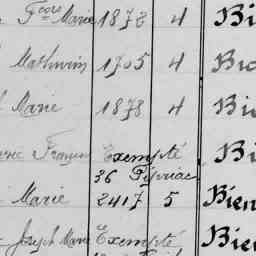 Fçois Marie 1878 4 Bi
Mathurin 1705 4 Bi
Marie 1878 4 Bi
Exempté Bi
36 Pipriac
Marie 2417 5 Bien
Joseph Marie Exempté Bien